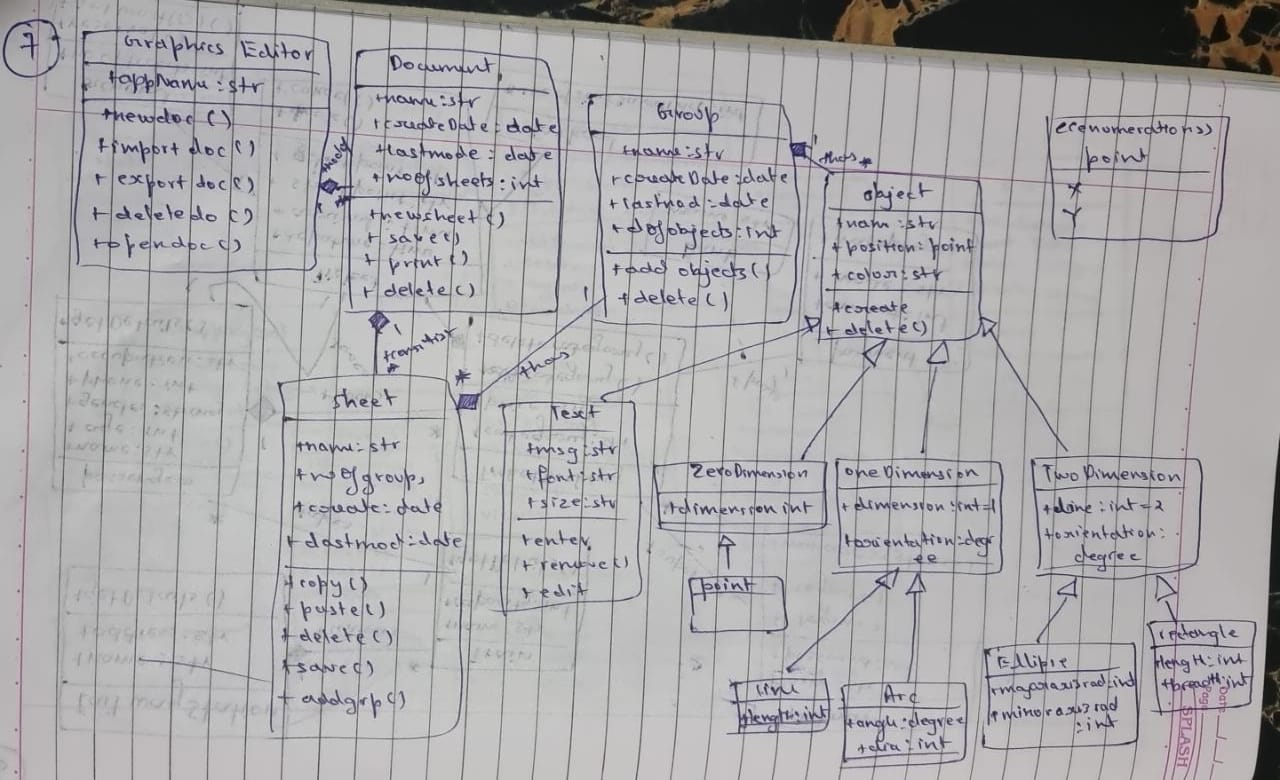 7
Graphics Editor
+appName : str
+newdoc ()
+import doc ()
+ export doc ()
+ deletedo ()
+opendoc ()
Document
+name : str
+createDate : date
+lastmode : date
+noofsheets : int
+newsheet ()
+ save ()
+ print ()
+ delete ()
1
*
Group
+name : str
+createDate : date
+lastmod : date
+ objects : int
+add objects ()
+delete ()
1
+has *
object
+nam : str
+ position : point
+ colour : str
+create
+ delete ()
<<enumerations>>
point
X
Y
1
*
1
*
+has
sheet
+name : str
+noofgroups
+create : date
+ lastmod : date
+copy ()
+ paste ()
+ delete ()
+save ()
+ addgrp ()
Text
+msg : str
+font : str
+size : str
+enter
+ remove ()
+ edit
ZeroDimension
+dimension int
point
oneDimension
+dimension : int=1
+orientation : degr
ee
Two Dimension
+dime : int = 2
+orientation :
degree
line
+length : int
Arc
+angle : degree
+dia : int
Ellipse
+majoraxisrad : int
+minoraxisrad
: int
rectangle
+length : int
+breadth : int
Date
Page
SPLASH